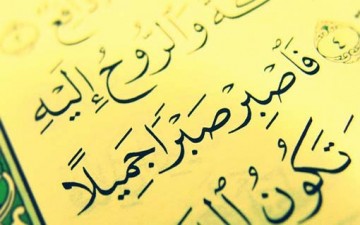 وَالرُّوحُ إِلَيْهِ
فَاصْبِرْ صَبْرًا جَمِيلًا
تَكُونُ